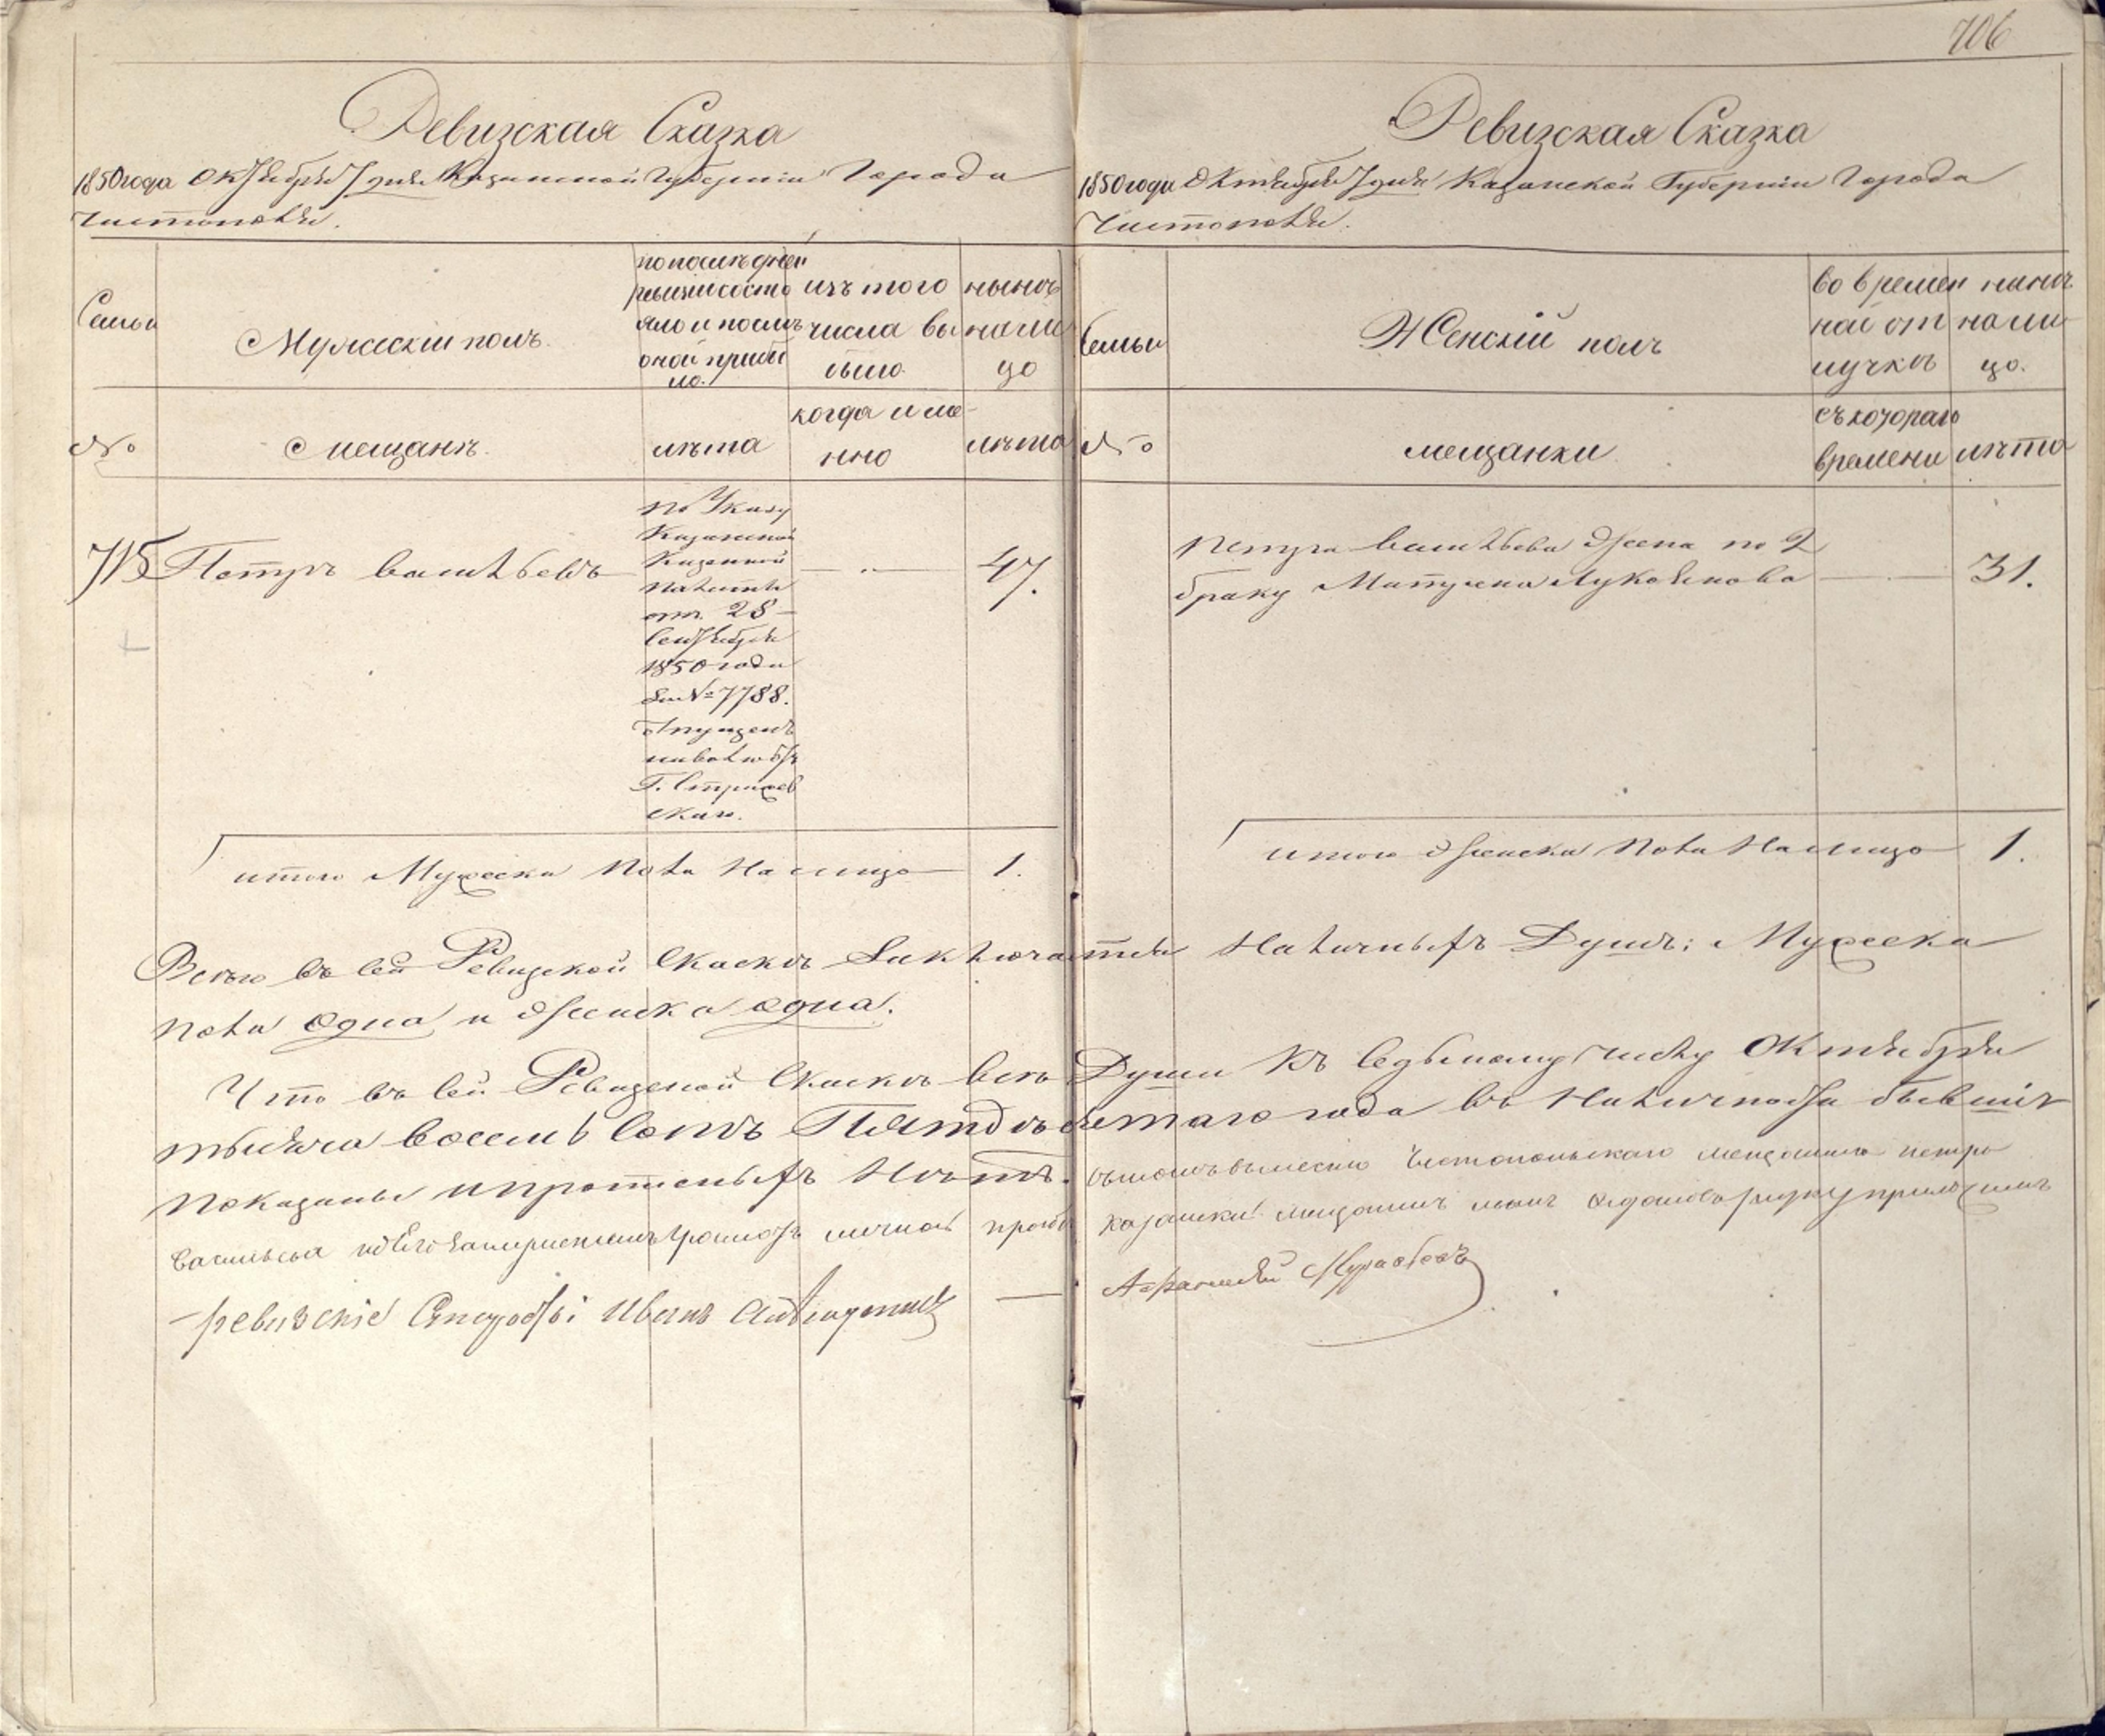 706
Ревизская Сказка
1850 года Октября 7 дня Казанской Губернии Города
Чистополя.
Семьи
Мужеский полъ.
по последней
ревизии состо
яло и послѣ
оной прибы
ло.
изъ того
числа вы
было
нынѣ
на ли
цо
№
Мещанъ.
лѣта
когда име-
нно
лѣта
715
Петръ Васильевъ
По Указу
Казанской
Казенной
Палаты
отъ 28
Сентября
1850 года
за № 7788.
отпущенъ
на волю отъ
Г.
скаго.
47.
итого Мужеска Пола На лицо 1.
Ревизская Сказка
1850 года Октября 7 дня Казанской Губернии Города
Чистополя.
Семьи
Женскій полъ
во времен
ной от
лучкѣ
нынѣ
на ли
цо.
№
мещанки
съ котораго
времени
лѣта
Петра Васильева Жена по 2
браку Матрена Лукоянова
31.
итого Женска Пола На лицо 1.
Всего въ сей Ревизской Сказкѣ Заключается Наличныхъ Душъ: Мужеска
пола одна и Женска одна.
Что въ сей Ревизской Сказкѣ всѣ Души Къ Седьмому числу Октября
тысяча восемь сотъ Пятдесятаго года въ Наличности бывшія
показаны и прописныхъ Нѣтъ. въ томъ вместо Чистопольскаго мещанина петра
Васильева по Его личной прозбѣ казанский мещанинъ руку приложилъ
ревизские Иванъ